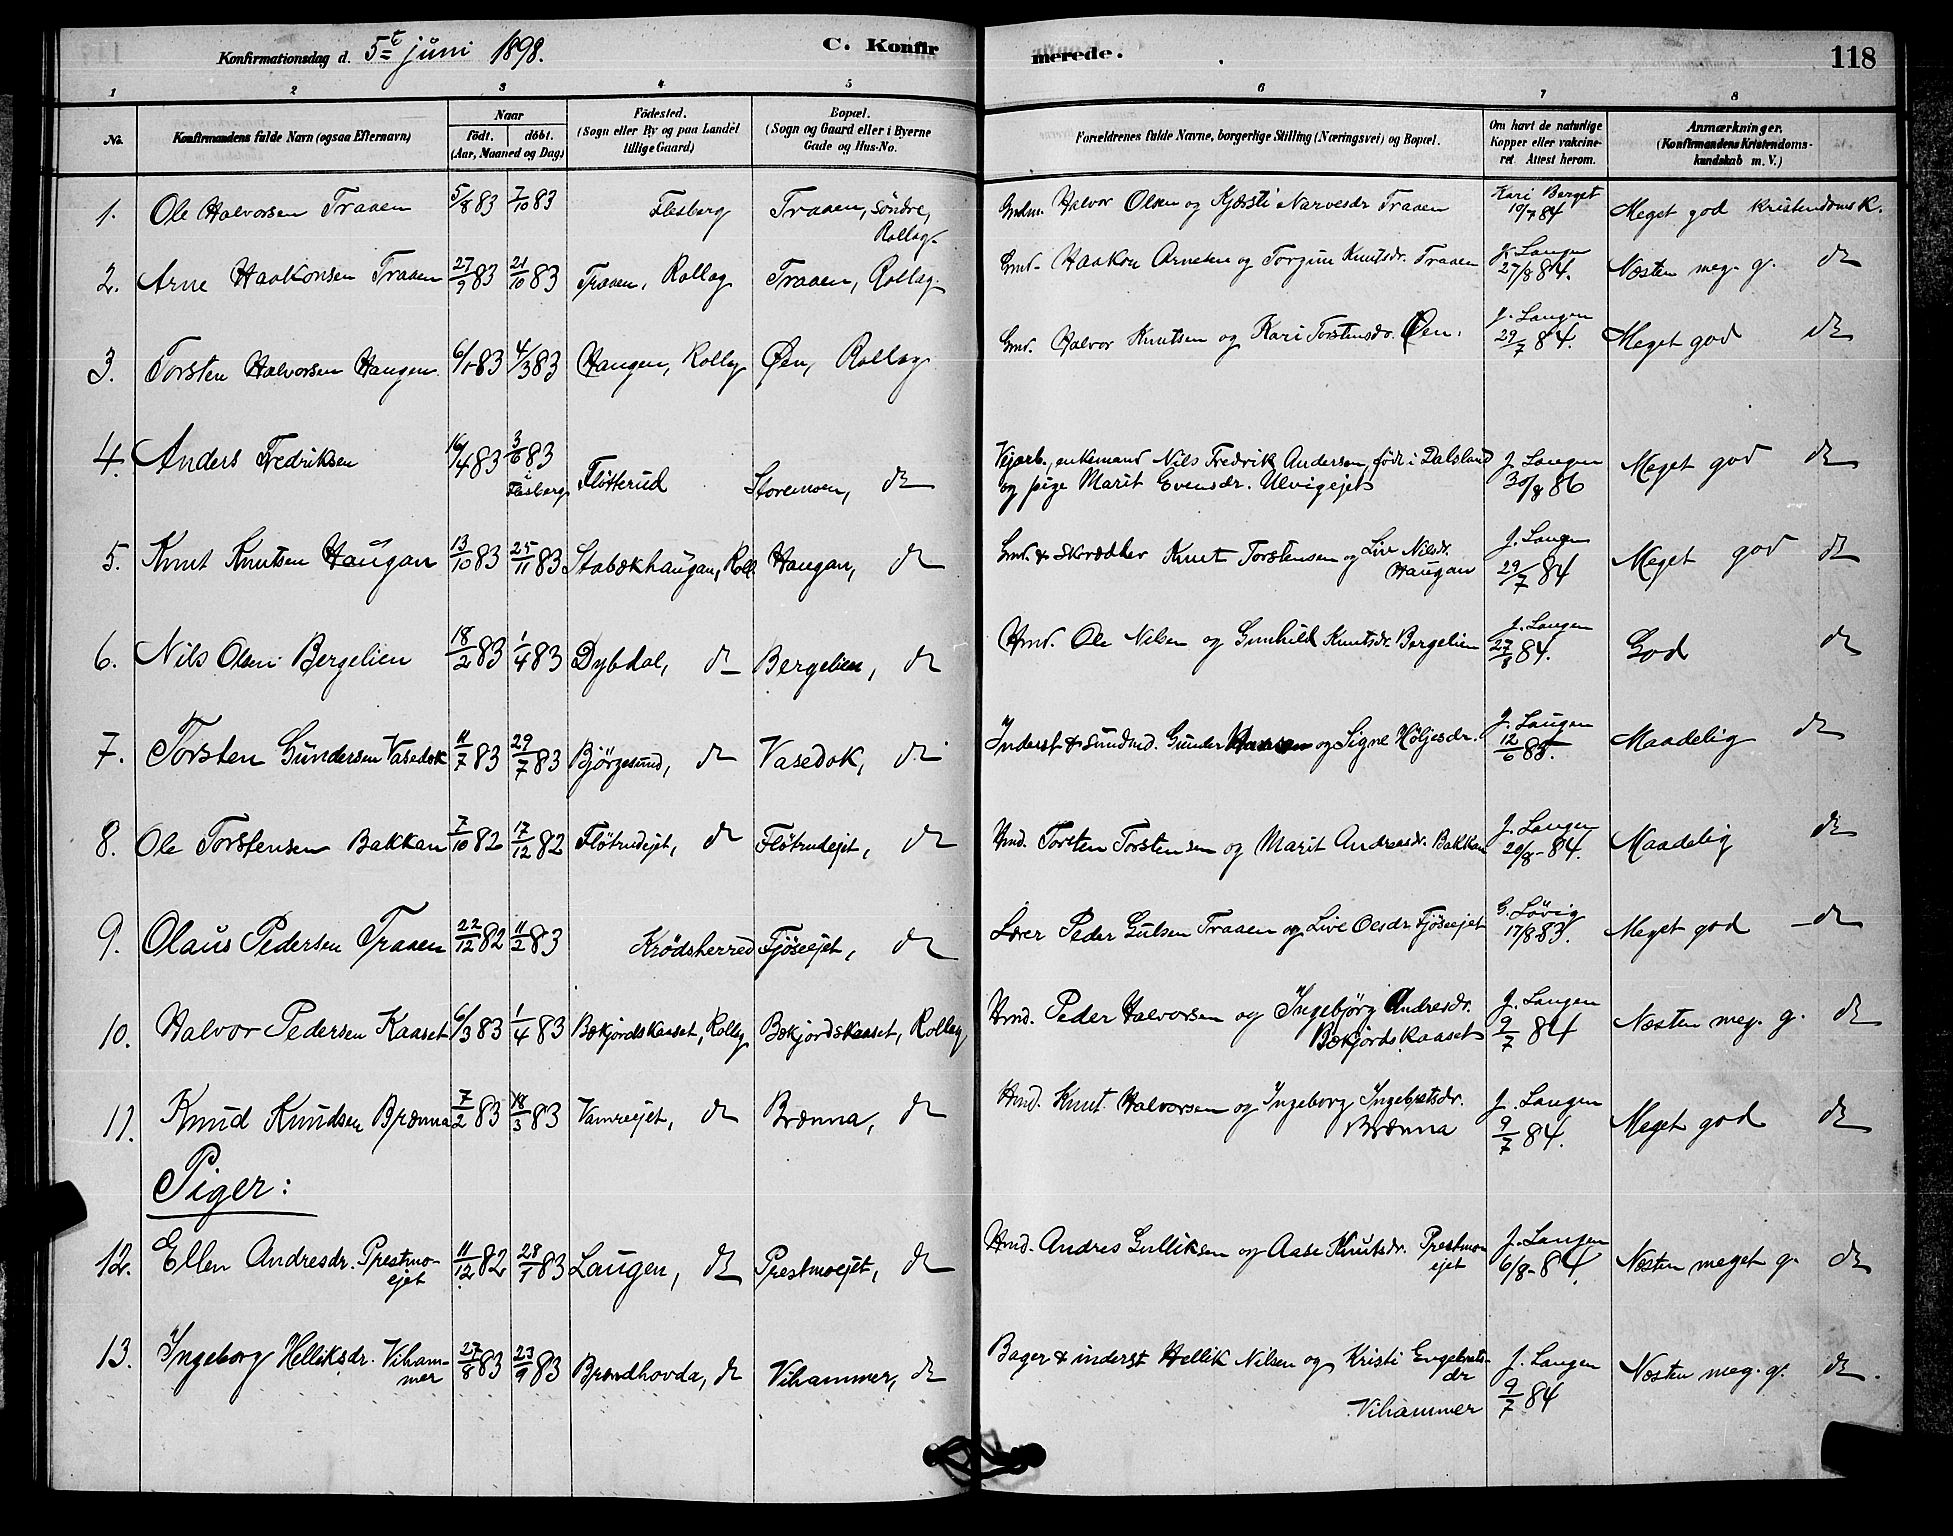 Konfirmationsdag d. 5te juni 1898.
C. Konfirmerede.
118
1 2 3 4 5 6 7 8
No.
Konfirmandens fulde Navn (ogsaa Efternavn)
Naar
födt. döbt.
(Aar, Maaned og Dag)
Födested.
(Sogn eller By og paa Landet
tillige Gaard)
Bopæl.
(Sogn og Gaard eller i Byerne
Gade og Hus-No.
Forældrenes fulde Navne, borgerlige Stilling (Næringsvei) og Bopæl.
Om havt de naturlige
Kopper eller vakcine-
ret. Attest herom.
Anmærkninger.
(Konfirmandens Kristendoms-
kundskab m. V.)
1. Ole Halvorsen Traaen 5/8 83 7/10 83 Flesberg Traaen, söndre,
Rollag.
Gmdm. Halvor Olsen og Kjersti Narvesdr Traaen
Kari Berget
10/7 84
Meget god kristendomsk.
2. Arne Haakonsen Traaen 27/9 83 21/10 83 Traaen, Rollag Traaen, Rollag
Gmd. Haakon Arnesen og Torgun Knutsdr. Traaen
J. Langen
27/8 84.
Næsten meg. g. do
3. Torsten Halvorsen Haugen 6/1 83 4/3 83 Haugen, Rollag Øen, Rollag
Gmd. Halvor Knutsen og Kari Torstensdr. Øen.
J. Langen
29/7 84.
Meget god do
4. Anders Fredriksen 16/4 83 3/6 83
Flesberg
Fløtterud Storemoen, do
Vejarb., enkemand Nils Fredrik Andersen, född i Dalsland
og pige Marit Evensdr. Ulvigejet
J. Langen
30/8 86
Meget god do
5. Knut Knutsen Haugan 13/10 83 25/11 83 Stabækhaugan, Roll. Haugan, do
Gmd. & skrædder Knut Torstensen og Liv Nilsdr.
Haugan
J. Langen
29/7 84
Meget god do
6. Nils Olsen Bergelien 18/2 83 1/4 83 Dybdal, do Bergelien, do
Hmd. Ole Nilsen og Gunhild Knutsdr. Bergelien
J. Langen
27/8 84.
God do
7. Torsten Gundersen Vasedok 11/7 83 29/7 83 Björgesund, do Vasedok, do
Inderst & sundmd. Gunder Hansen og Signe Höljesdr.
J. Langen
12/6 85.
Maadelig do
8. Ole Torstensen Bakkan 7/10 82 17/12 82 Flötrudejet, do Flötrudejet, do
Hmd. Torsten Torstensen og Marit Andreasdr. Bakkan
J. Langen
20/8-84.
Maadelig do
9. Olaus Pedersen Traaen 22/12 82 11/2 83 Krödsherred Fjöseejet, do
Lærer Peder Gulsen Traaen og Live Olsdr Fjöseejet
G. Lövig
17/8 83.
Meget god do
10. Halvor Pedersen Kaaset 6/3 83 1/4 83 Bækjordskaaset, Rollag Bækjordskaaset, Rollag
Hmd. Peder Halvorsen og Ingebjörg Andresdr.
Bækjordskaaset
J. Langen
9/7 84
Næsten meg. g. do
11. Knud Knudsen Brænna 7/2 83 18/3 83 Vamreejet, do Brænna, do
Hmd. Knut Halvorsen og Ingeborg Ingebretsdr.
Brænna
J. Langen
9/7 84.
Meget god do
Piger:
12. Ellen Andresdr. Prestmo-
ejet
11/12 82 28/1 83 Laugen, do Prestmoejet, do
Hmd. Andres Gulliksen og Aase Knutsdr. Prestmo
ejet
J. Langen
6/8-84.
Næsten meget g. do
13. Ingeborg Helliksdr. Viham-
mer
27/8 83 23/9 83 Brændhovda, do Vihammer, do
Bager & inderst Hellik Nilsen og Kristi Engebrets-
dr
Vihammer
J. Langen
9/7 84
Næsten meg. g. do.